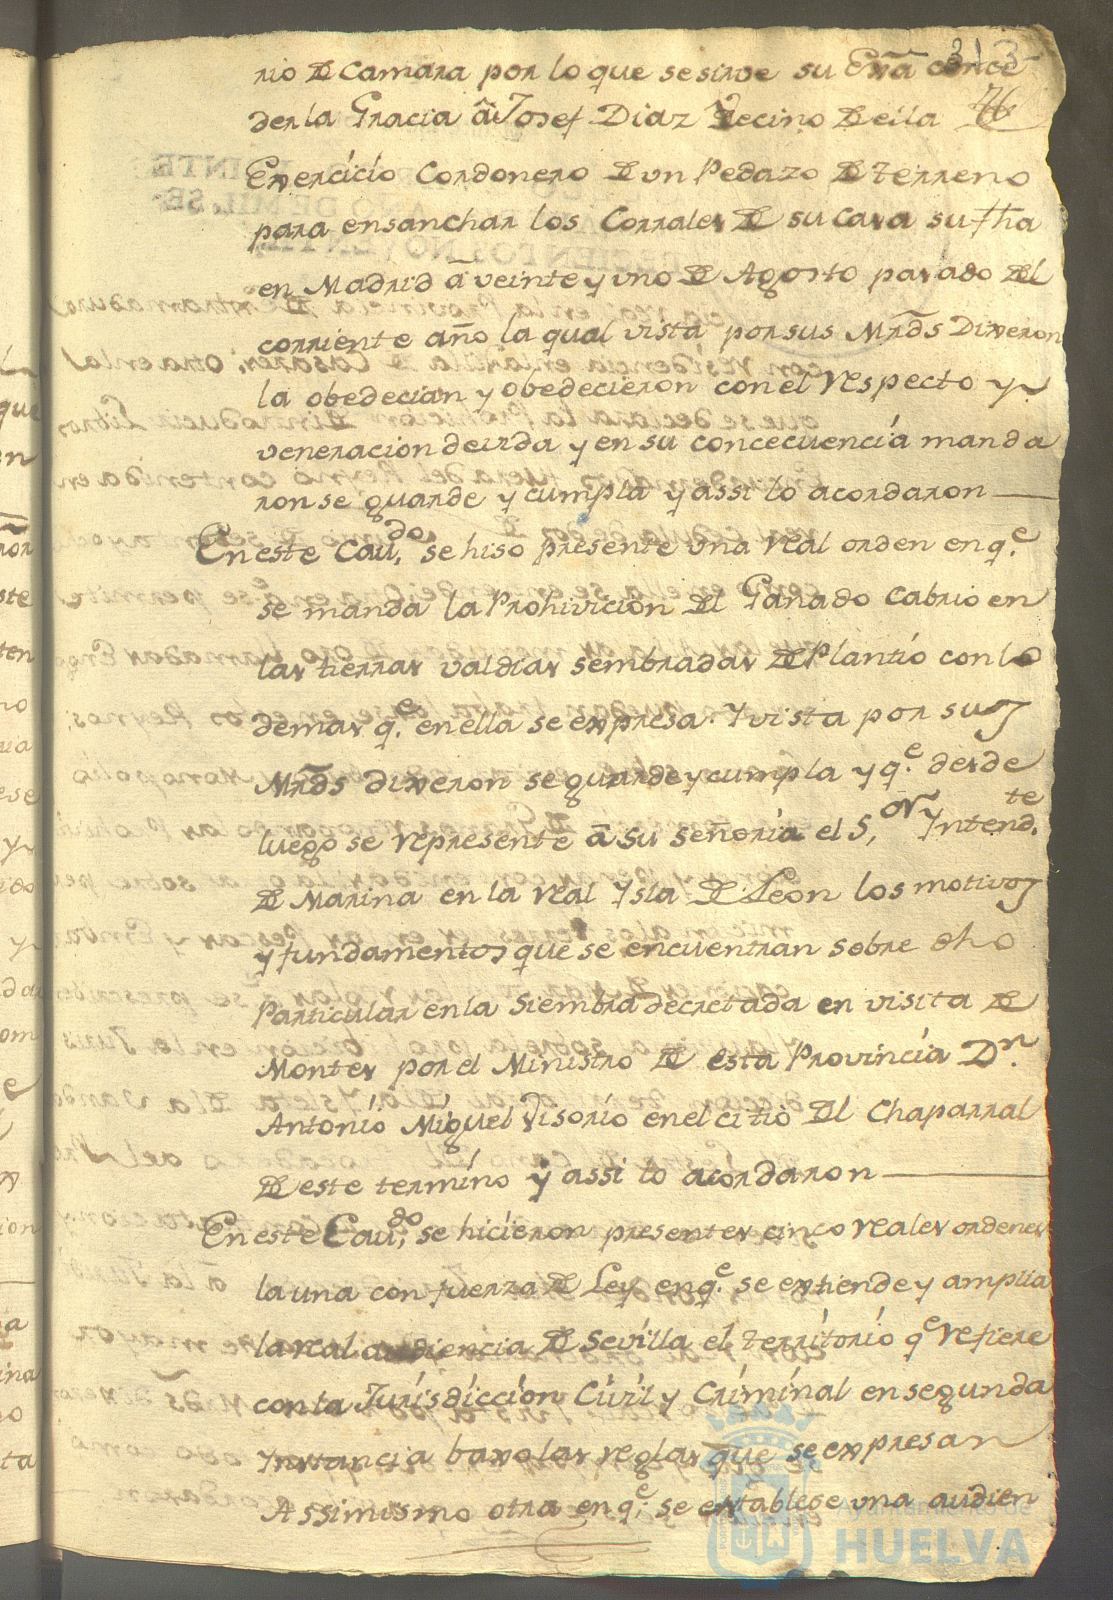 313
76
rio de Camara por lo que se sirve su Exã conce
der la Gracia â Josef Diaz Vecino de ella
Exercicio Cordonero de un Pedazo de terreno
para ensanchar los Corrales de su casa su fha
en Madrid â veinte y uno de Agosto pasado del
corriente año la qual vista por sus Mrds Dixeron
la obedecian y obedecieron con el respecto y
veneracion devida y en su concecuencia manda
ron se guarde y cumpla y assi lo acordaron
En este Cavdo, se hiso presente una real orden en q.e
se manda la Prohivicion del Ganado Cabrio en
las tierras valdias sembradas de Plantio con lo
demas q.e en ella se expresa. Y vista por sus
Mrds dixeron se guarde y cumpla y q.e desde
luego se represente â su señoria el S,or Yntend.te
de Marina en la real Ysla de Leon los motivos
y fundamentos que se encuentran sobre dho
Particular en la Siembra decretada en visita de
Montes por el Ministro de esta Provincia Dn.
Antonio Miguel Tisorio en el citio del Chaparral
de este termino y assi lo acordaron
En este Cavdo, se hicieron presentes cinco reales ordenes
la una con fuerza de Ley en q.e se extiende y amplia
la real audiencia de Sevilla el territorio q.e refiere
con la Jurisdiccion Civil y Criminal en segunda
Ynstancia baxo las reglas que se expresan
Assimismo otra en q.e se establese una audien
Ayuntamiento de
HUELVA